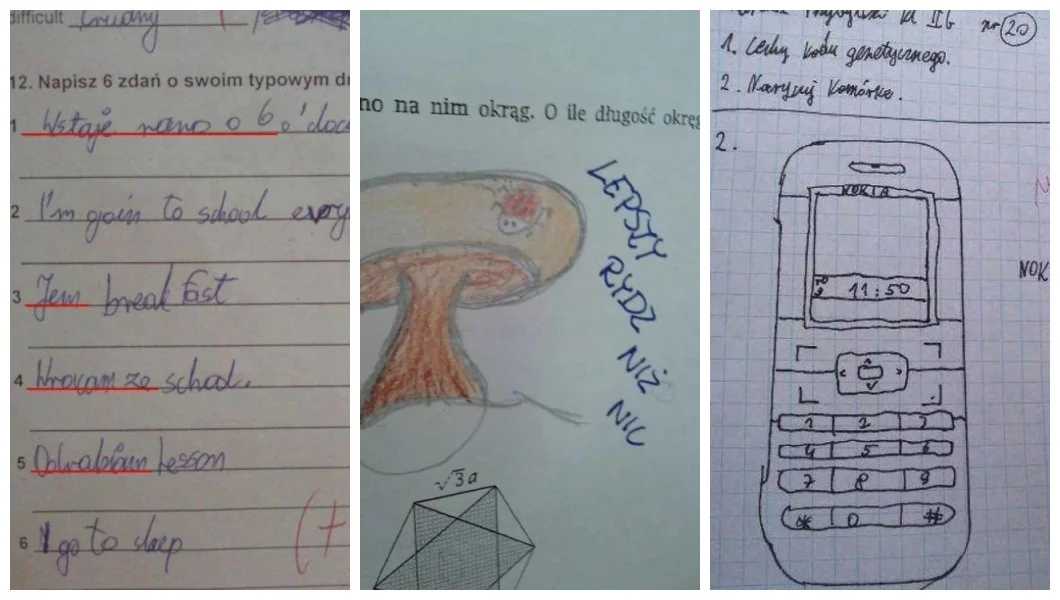 difficult trudny
12. Napisz 6 zdań o swoim typowym d
1 Wstaje rano o 6 o'cloc
2 I'm goin to school every
3 Jem break fast
4 Wrocam ze school.
5 Odrabiam lesson
6 I go to sleep
(+
no na nim okrąg. O ile długość okrę
LEPSZY
RYDZ
NIŻ
NIC
√3a
kl IIb nr 20
1. Cechy kodu genetycznego.
2. Narysuj komórkę.
2.
NOKIA
11:50
NOK
1 2 3
4 5 6
7 8 9
* 0 #